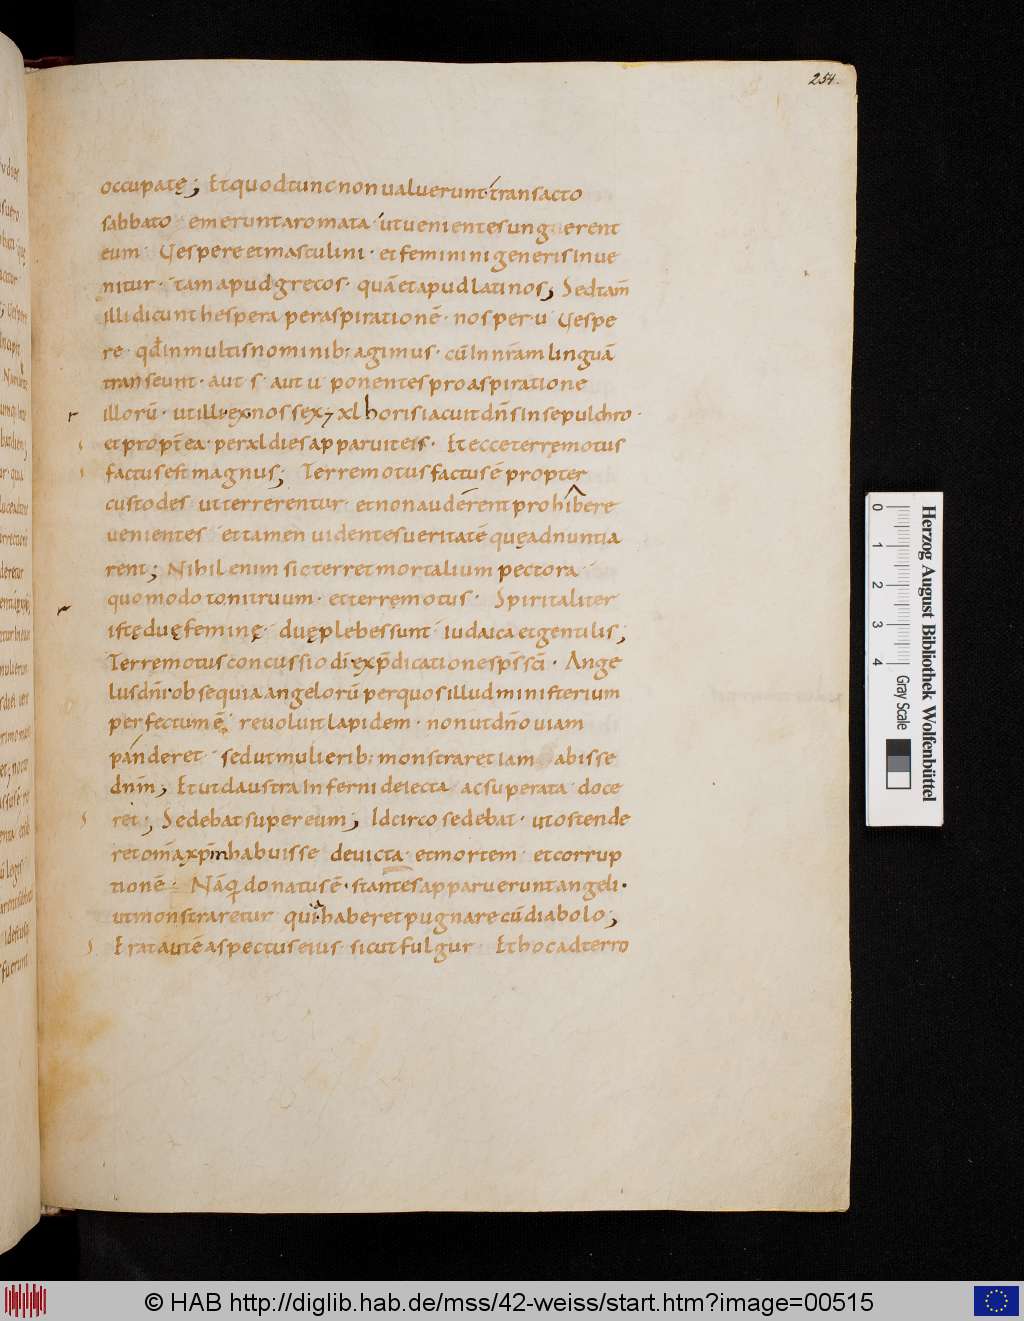 254.
occupatę; Et quod tunc non ualuerunt· transacto
sabbato emerunt aromata· ut uenientes unguerent
eum· Uespere et masculini· et feminini generis inue
nitur· tam apud grecos· quā et apud latinos; Sed tam̄
illi dicunt hespera per aspirationē· nos per u Uespe
re· qđ in multis nominib; agimus· cū in nr̄am linguā
transeunt· aut s· aut u ponentes pro aspiratione
illorū· ut illi ex nos sex; xl horis iacuit dn̄s in sepulchro·
et propt̄ ea· per xl dies apparuit eis· Et ecce terręmotus
factus est magnus; Terremotus factus ē propter
custodes ut terrerentur· et non auder̄ent prohibere
uenientes et tamen uidentes ueritatē quę adnuntia
rent; Nihil enim sic terret mortalium pectora
quomodo tonitruum· et terręmotus· Spiritaliter
istę duę feminę· duę plebes sunt iudaica et gentilis;
Terremotus concussio dī ex p̄dicatione sp̄s sc̄i· Ange
lus dn̄i· obsequia angelorū per quos illud ministerium
perfectum ē· reuoluit lapidem· non ut dn̄o uiam
panderet· sed ut mulierib; monstraret iam abisse
dnm̄; Et ut claustra inferni deiecta ac superata doce
ret; Sedebat super eum; Idcirco sedebat· ut ostende
ret om̄a xp̄m habuisse deuicta· et mortem· et corrup
tionē· Nāq donatus ē· stantes apparuerunt angeli·
ut monstraretur qui haberet pugnare cū diabolo;
Erat autē aspectus eius· sicut fulgur· Et hoc ad terro
Herzog August Bibliothek Wolfenbüttel
0 1 2 3 4 Gray Scale
© HAB http://diglib.hab.de/mss/42-weiss/start.htm?image=00515